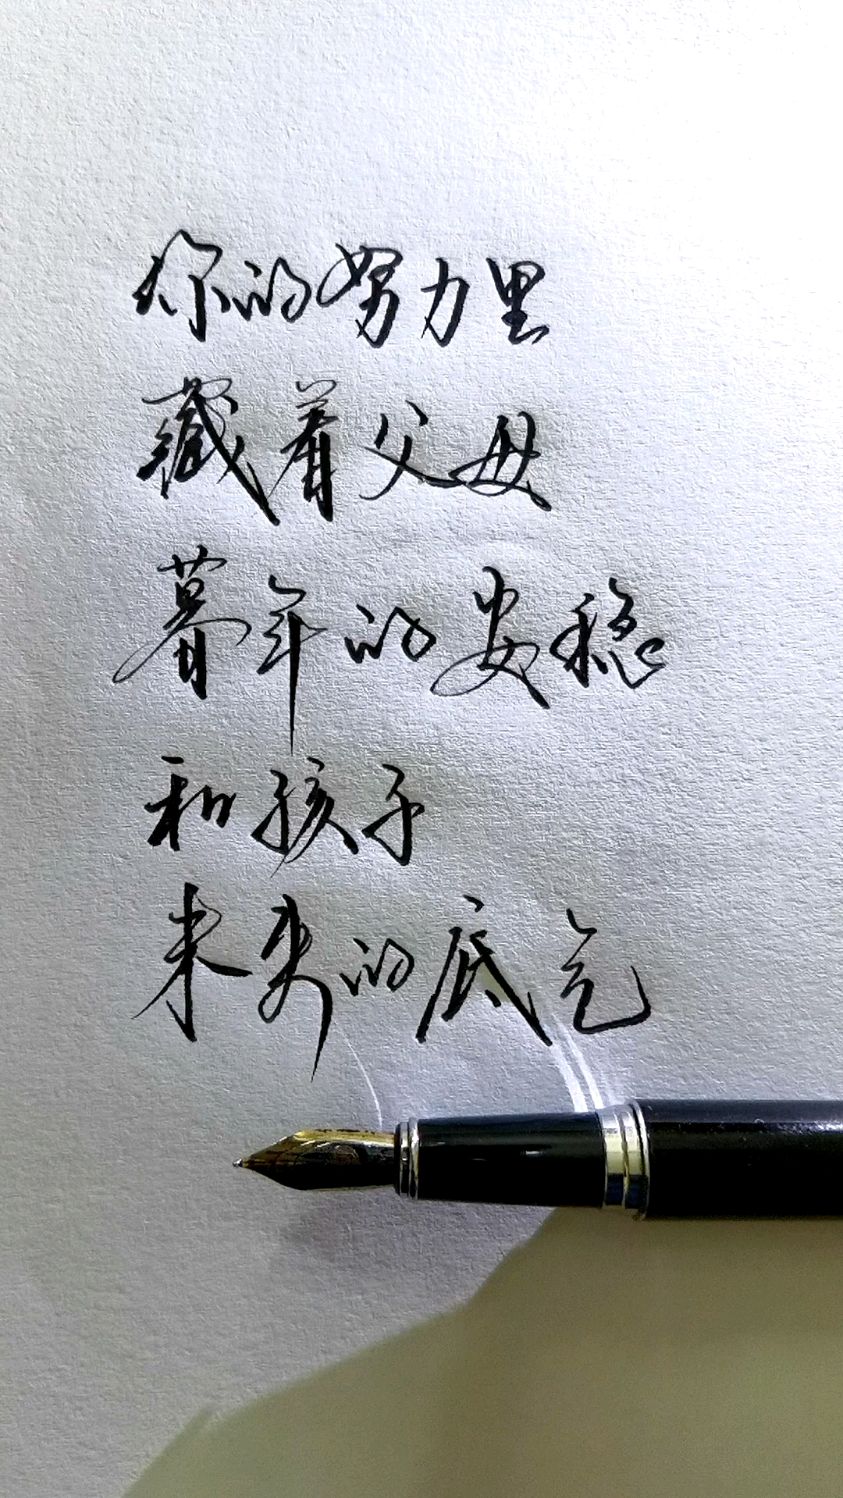 你的努力里
藏着父母
暮年的安稳
和孩子
未来的底气